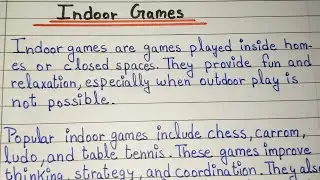 Indoor Games
Indoor games are games played inside hom-
es or closed spaces. They provide fun and
relaxation, especially when outdoor play is
not possible.
Popular indoor games include chess, carrom,
ludo, and table tennis. These games improve
thinking, strategy, and coordination. They also